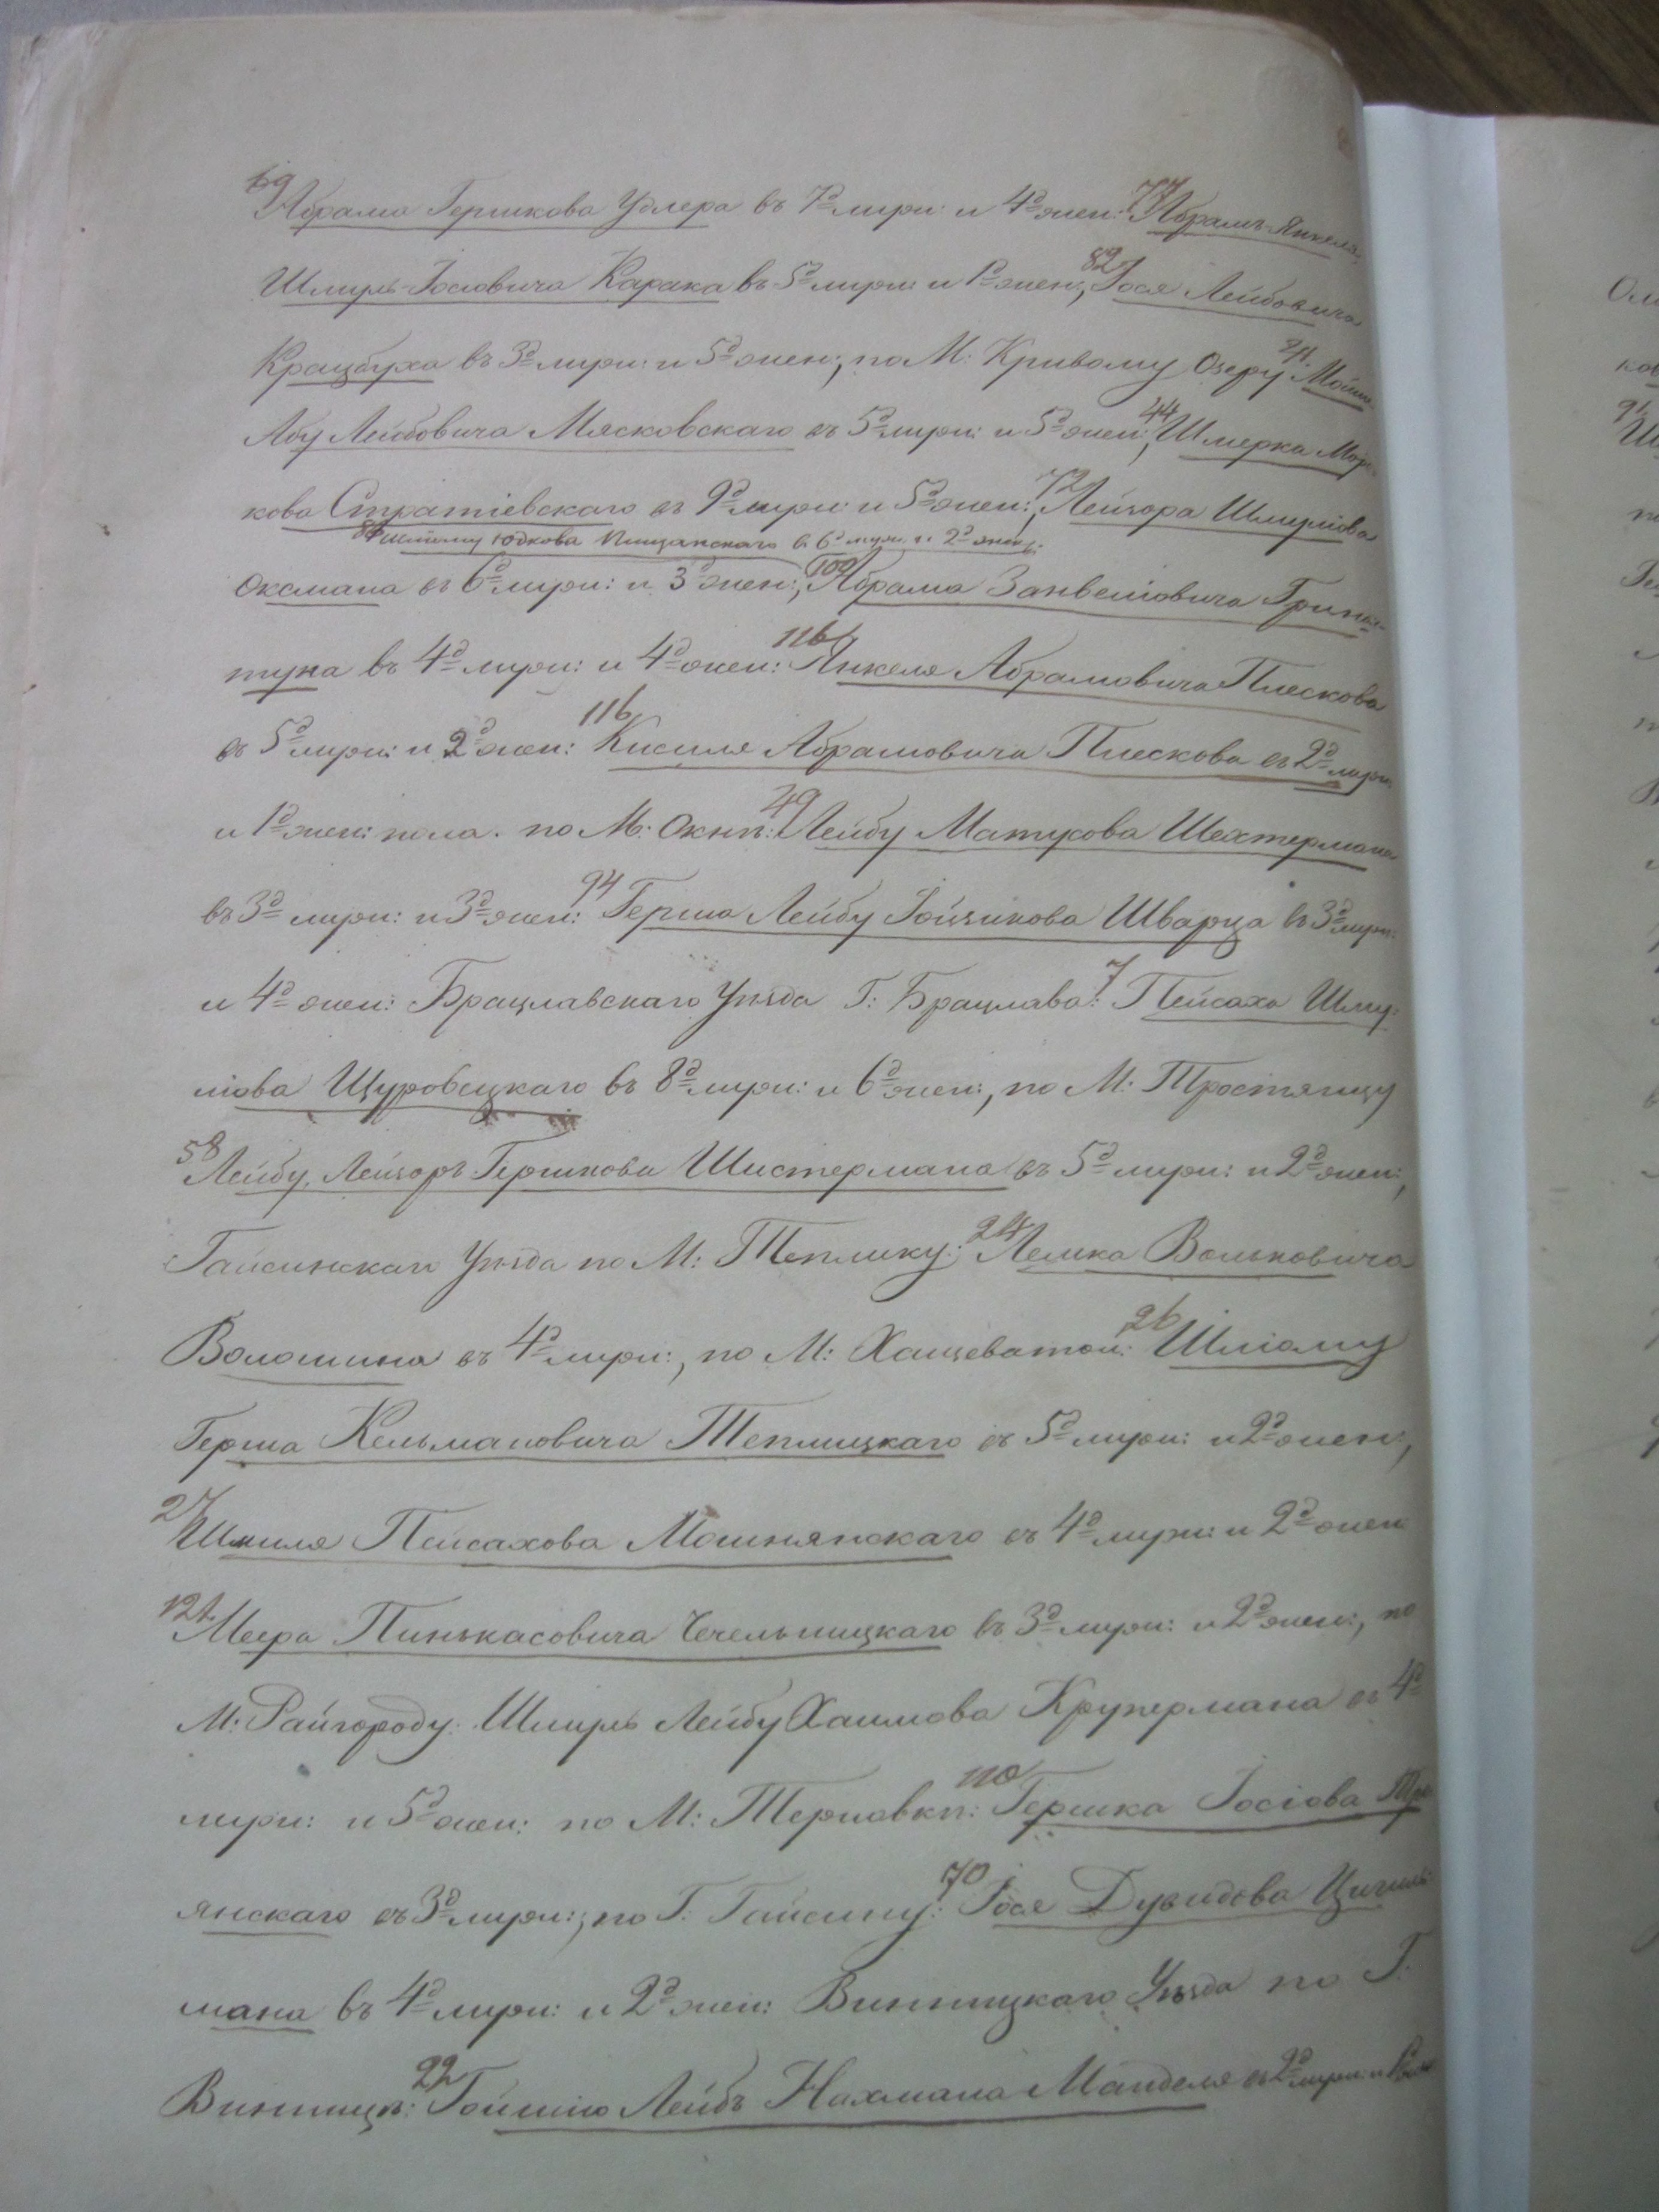 69 Абрама Гершкова Удлера въ 7д мужи: и 4д жен: 77 Абрамъ-Янкеля
Шмуль-Іосіовича Карака въ 5д мужи: и 1д жен:, 82 Іося Лейбовича
Крацбуха въ 3д мужи: и 5д жен:, по М: Кривому Озеру: 21. Мошко
Абу Лейбовича Мясковскаго въ 5д мужи: и 5д жен:, 44 Шмерка Мор-
кова Стратіевскаго въ 9д мужи: и 5д жен:, 72 Лейзора Шмуліова
86 Шлёму Юдкова Пищанскаго въ 6д муж. и 2д жен:
Оксмана въ 6д мужи: и 3д жен:, 100 Абрама Занвеліовича Грин-
туха въ 4д мужи: и 4д жен: 116 Янкеля Абрамовича Плескова
въ 5д мужи: и 2д жен: 116 Кисиля Абрамовича Плескова въ 2д мужи:
и 1д жен: пола. по М: Окнѣ: 49 Лейбу Матусова Шехтермана
въ 3д мужи: и 3д жен: 94 Герша Лейбу Іойзикова Шварца въ 3д мужи:
и 4д жен: Брацлавскаго Уѣзда Г: Брацлава: 7 Пейсаха Шму-
ліова Щуровецкаго въ 8д мужи: и 6д жен:, по М: Тростянцу
58 Лейбу, Лейзоръ Гершкова Шистермана въ 5д мужи: и 2д жен:,
Гайсинскаго Уѣзда по М: Теплику: 24 Лемка Вольковича
Волошина въ 4д мужи:, по М: Хащеватой: 26 Шліому
Герша Кельмановича Теплицкаго въ 5д мужи: и 2д жен:,
27 Шмиля Пейсахова Мошнянскаго въ 4д мужи: и 2д жен:
121. Меера Пинькасовича Чечельницкаго въ 3д мужи: и 2д жен:, по
М: Райгороду: Шмуль Лейбу Хаимова Крупермана въ 4д
мужи: и 5д жен: по М: Терновкѣ: 110 Гершка Іосіова
янскаго въ 3д мужи:, по Г: Гайсину: 70 Іося Дувидова
мана въ 4д мужи: и 2д жен: Винницкаго Уѣзда по Г:
Винницѣ: 22 Лейбъ Нахмана Манделя въ 2д мужи: и